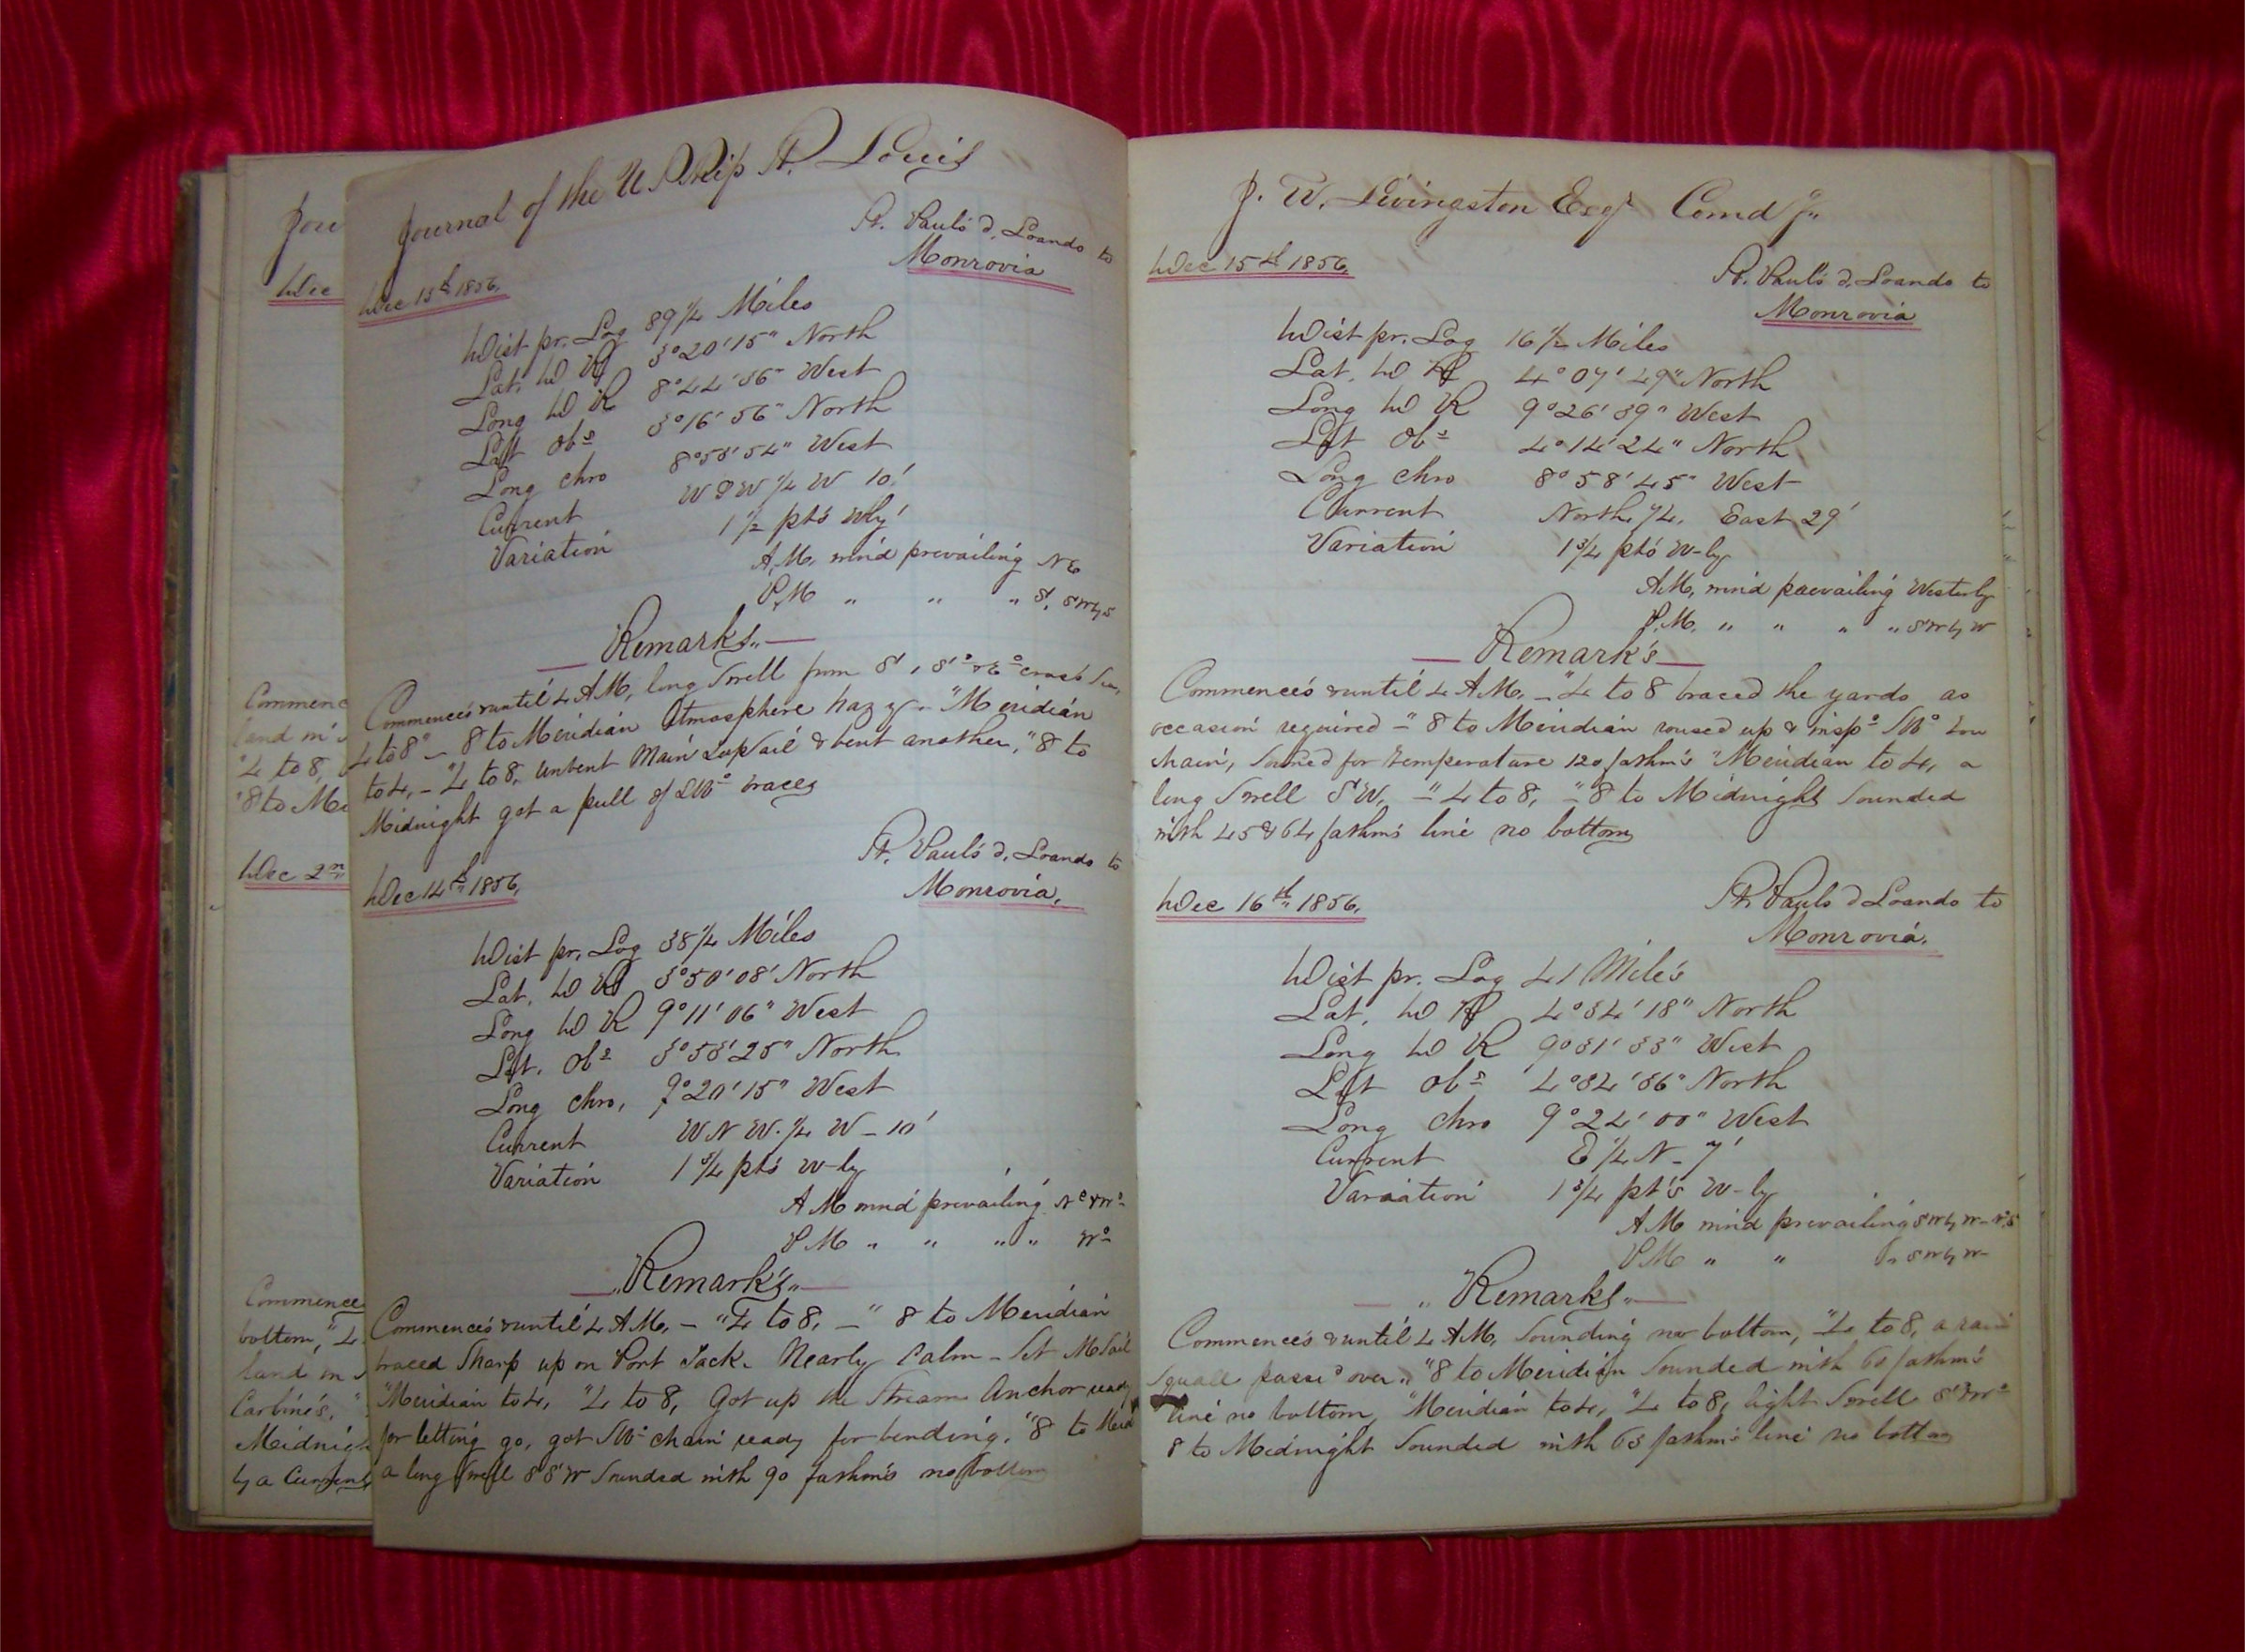 Jou
Dec
Commenc
land in
"4 to 8,
"8 to Me
Dec 2nd
Commence
bottom, "4
land in
Carbines, "
Midnigh
by a Current
Journal of the U S Ship St. Louis
St. Paul's d. Loando to
Monrovia
Dec 13th 1856.
Dist pr. Log 89 1/4 Miles
Lat, D R 3° 20' 15" North
Long D R 8° 44' 36" West
Lat obs 3° 16' 56" North
Long chro 8° 53' 54" West
Current W S W 1/4 W 10'
Variation 1 1/2 pts Wly
A.M. wind prevailing NE
P.M " " " S, SW by S
Remarks
Commences & until 4 AM, long Swell from S, Sd & Ed cross Sea,
4 to 8" – 8 to Meridian Atmosphere hazy – "Meridian
to 4, – "4 to 8, Unbent Main TopSail & bent another, "8 to
Midnight got a pull of braces
St. Paul's d. Loando to
Monrovia.
Dec 14th 1856,
Dist pr. Log 38 1/4 Miles
Lat. D R 3° 50' 08' North
Long D R 9° 11' 06" West
Lat. obs 3° 53' 25" North
Long chro, 9° 20' 15" West
Current W N W. 1/4 W – 10'
Variation 1 3/4 pts W-ly
A M wind prevailing Nd & Wd
P M " " " " Wd
"Remark's"
Commences & until 4 AM, – "4 to 8, – " 8 to Meridian
braced Sharp up on Port Tack. Nearly Calm – Set M Sail
"Meridian to 4, "4 to 8, Got up the Stream Anchor ready
for letting go, got chain ready for bending, "8 to Mid
a long Swell S S W Sounded with 90 fathm's no bottom
J. W. Livingston Esqr Comdg"
Dec 15th 1856.
St. Paul's d. Loando to
Monrovia
Dist pr. Log 16 1/2 Miles
Lat. D R 4° 07' 49" North
Long D R 9° 26' 39" West
Lat obs 4° 14' 24" North
Long chro 8° 58' 45" West
Current North, 1/4, East 29'
Variation 1 3/4 pts W-ly
A.M, wind prevailing Westerly
P.M. " " " " SW by W
Remark's
Commences & until 4 A.M. – "4 to 8 braced the yards as
occasion required – " 8 to Meridian roused up & inspd Tow
chain, Sound for temperature 120 fathm's "Meridian to 4, a
long Swell SW, – " 4 to 8, – " 8 to Midnight Sounded
with 45 & 64 fathm's line no bottom
Dec 16th 1856.
St. Pauls d Loando to
Monrovia.
Dist pr. Log 41 Mile's
Lat, D R 4° 34' 18" North
Long D R 9° 31' 33" West
Lat obs 4° 34' 36" North
Long chro 9° 24' 00" West
Current E 1/4 N – 7'
Variation 1 3/4 pt's W-ly
A M wind prevailing SW by W
P M " " SW by W
"Remarks"
Commences & until 4 AM, Sounding no bottom, "4 to 8, a rain
Squall pass'd over. "8 to Meridian Sounded with fathm's
line no bottom, "Meridian to 4, "4 to 8, light Swell Sd & Wd
8 to Midnight Sounded with 63 fathm's line no bottom